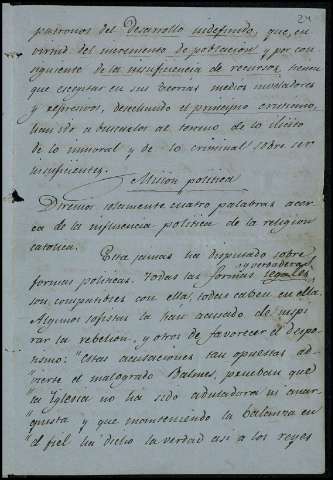 24
patronos del Desarrollo indefinido, que, en
virtud del incremento de poblacion y por con
siguiente de la insuficiencia de recursos, tienen
que escogitar en sus teorias medios niveladores
y represivos, desechando el principio cristiano,
han ido a buscarlos al terreno de lo ilicito
de lo inmoral y de lo criminal sobre ser
insuficientes.
Mision politica
Diremos solamente cuatro palabras acer
ca de la influencia politica de la religion
catolica.
Esta jamas ha disputado sobre
y verdaderas
formas politicas. Todas las formas legales
son compatibles con ella, todas caben en ella.
Algunos sofistas la han acusado de inspi
rar la rebelion, y otros de favorecer el despo
tismo: "Estas acusaciones tan opuestas ad-
"vierte el malogrado Balmes, prueban que
"la Iglesia no ha sido aduladora ni anar
"quista y que manteniendo la balanza en
"el fiel ha dicho la verdad asi a los reyes